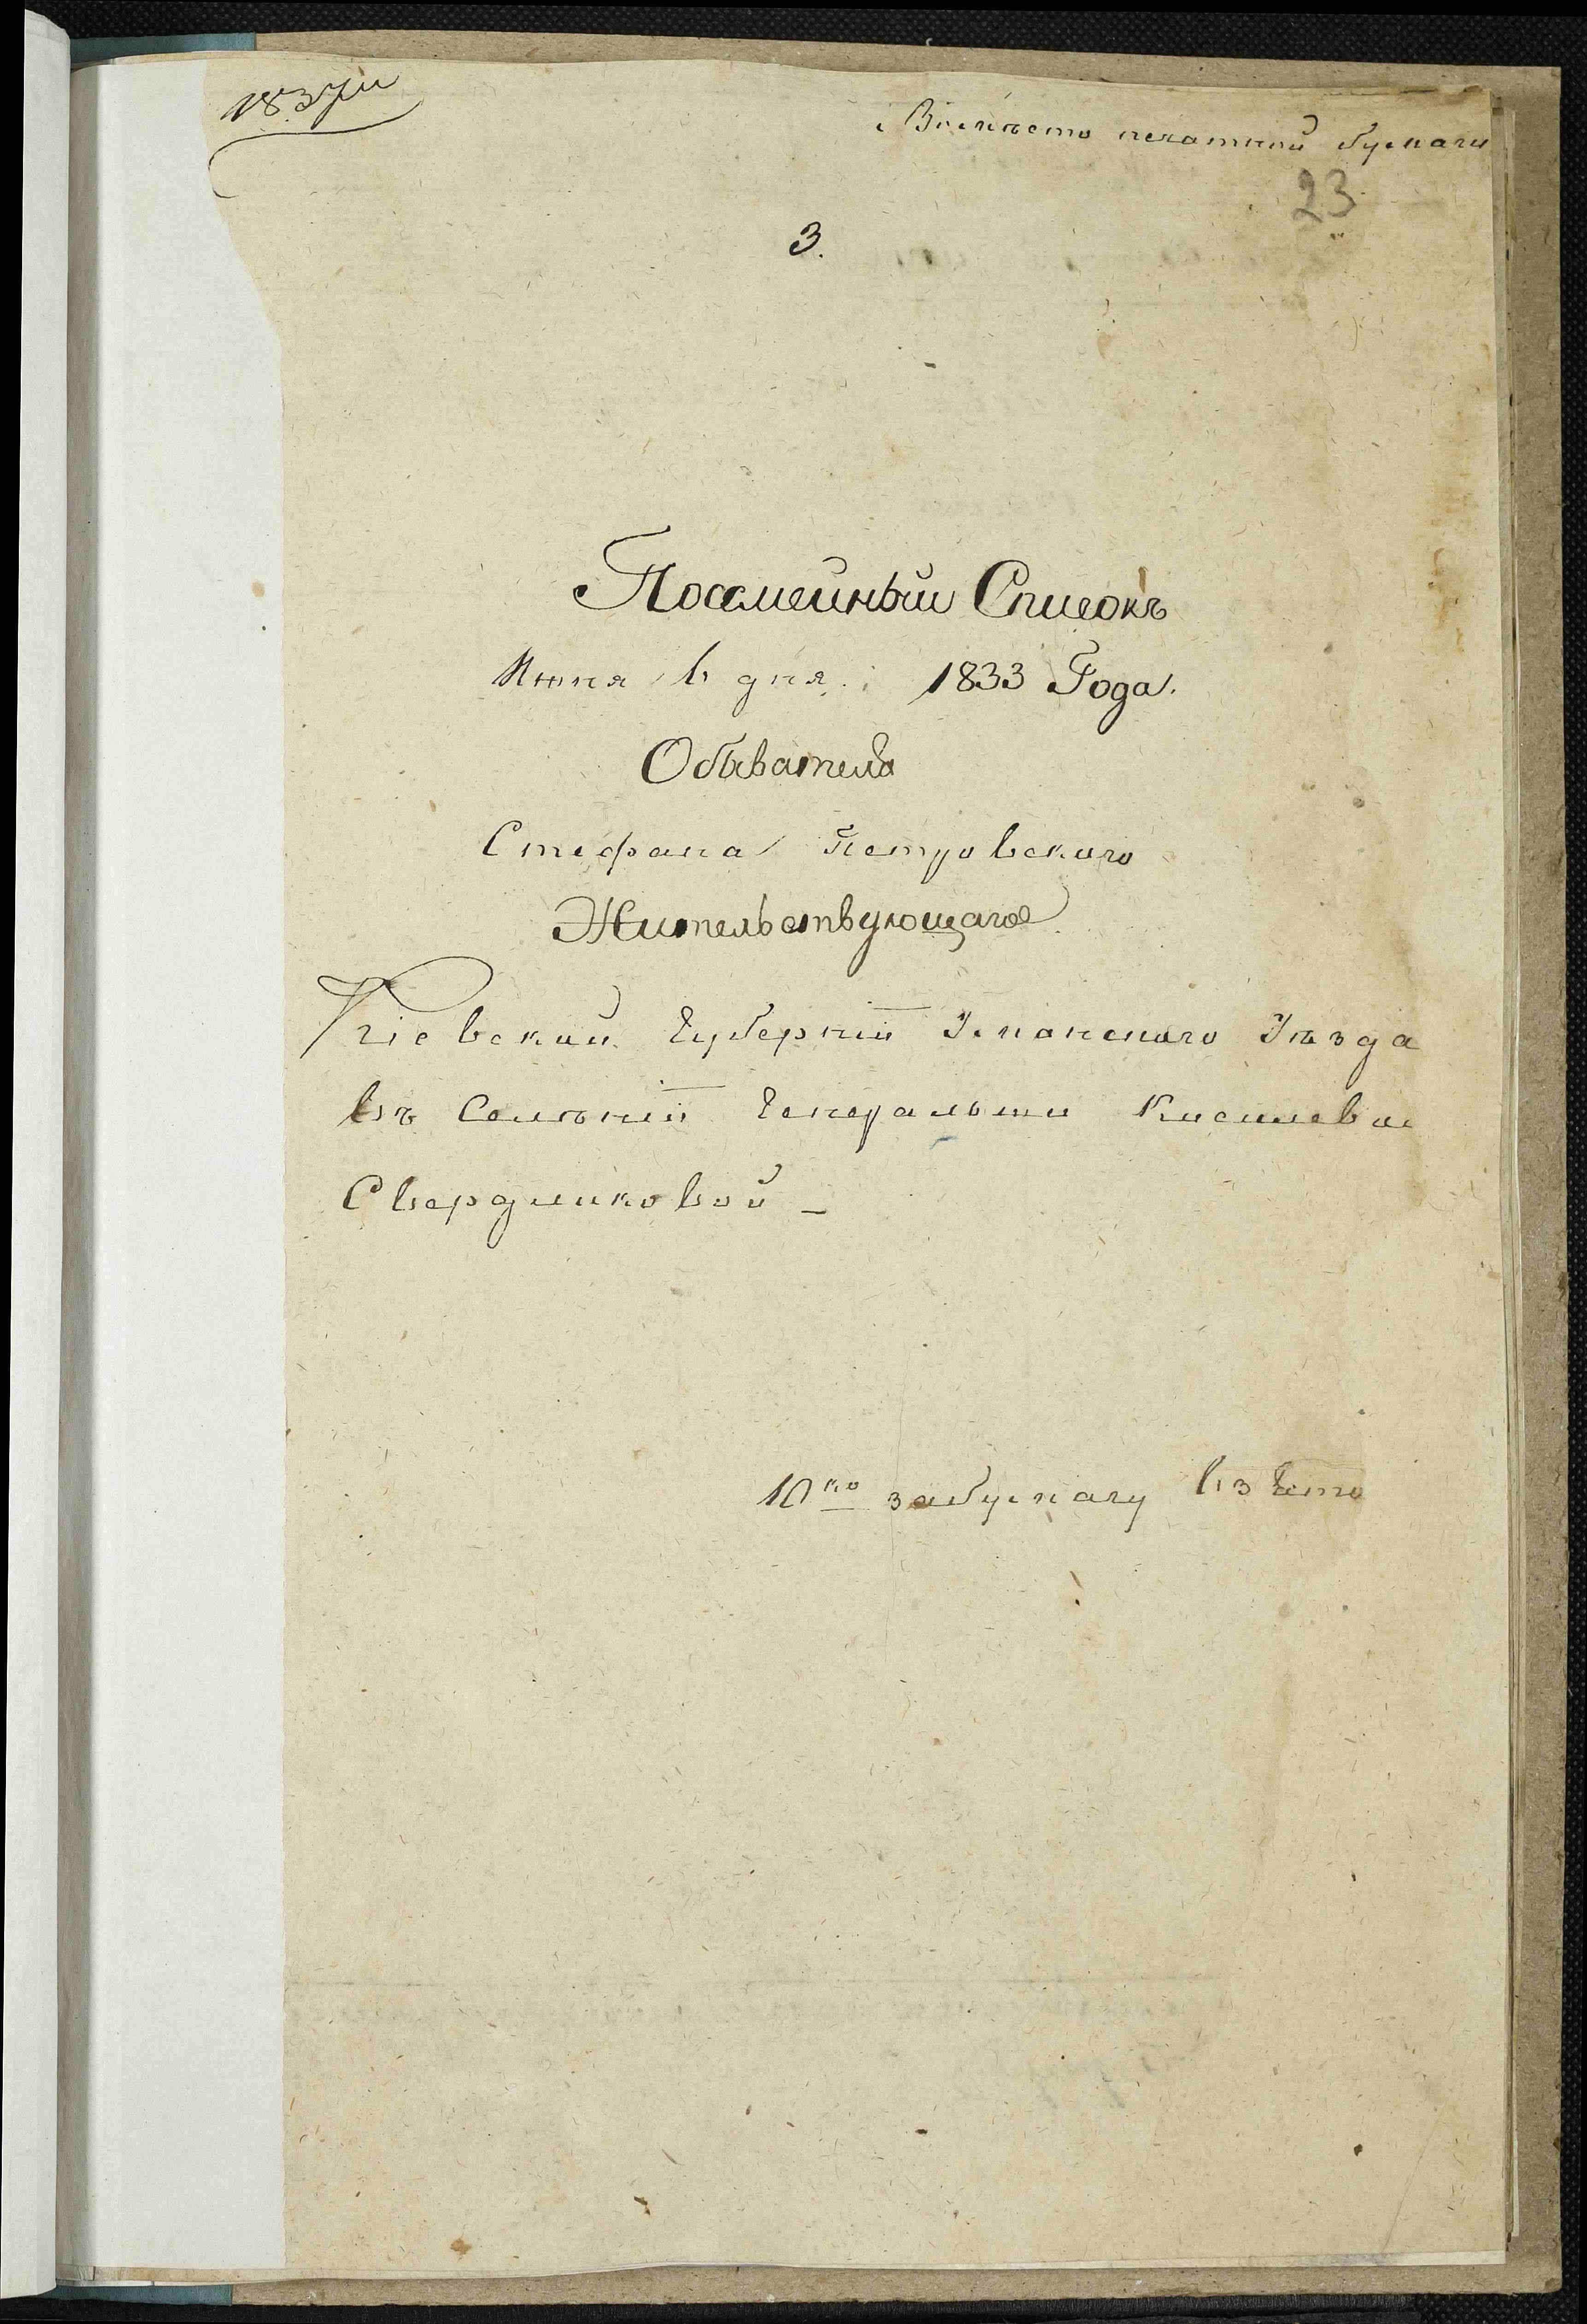 Вмѣсто печатной бумаги
23
3.
Посемейный Списокъ
Июня 6 дня 1833 Года.
Обывателя
Стефана Петровского
Жительствующаго
Кіевской Губерніи Уманского Уѣзда
въ Селѣніи Генеральши Киселевои
Свердликовой
10 ко за бумагу взято